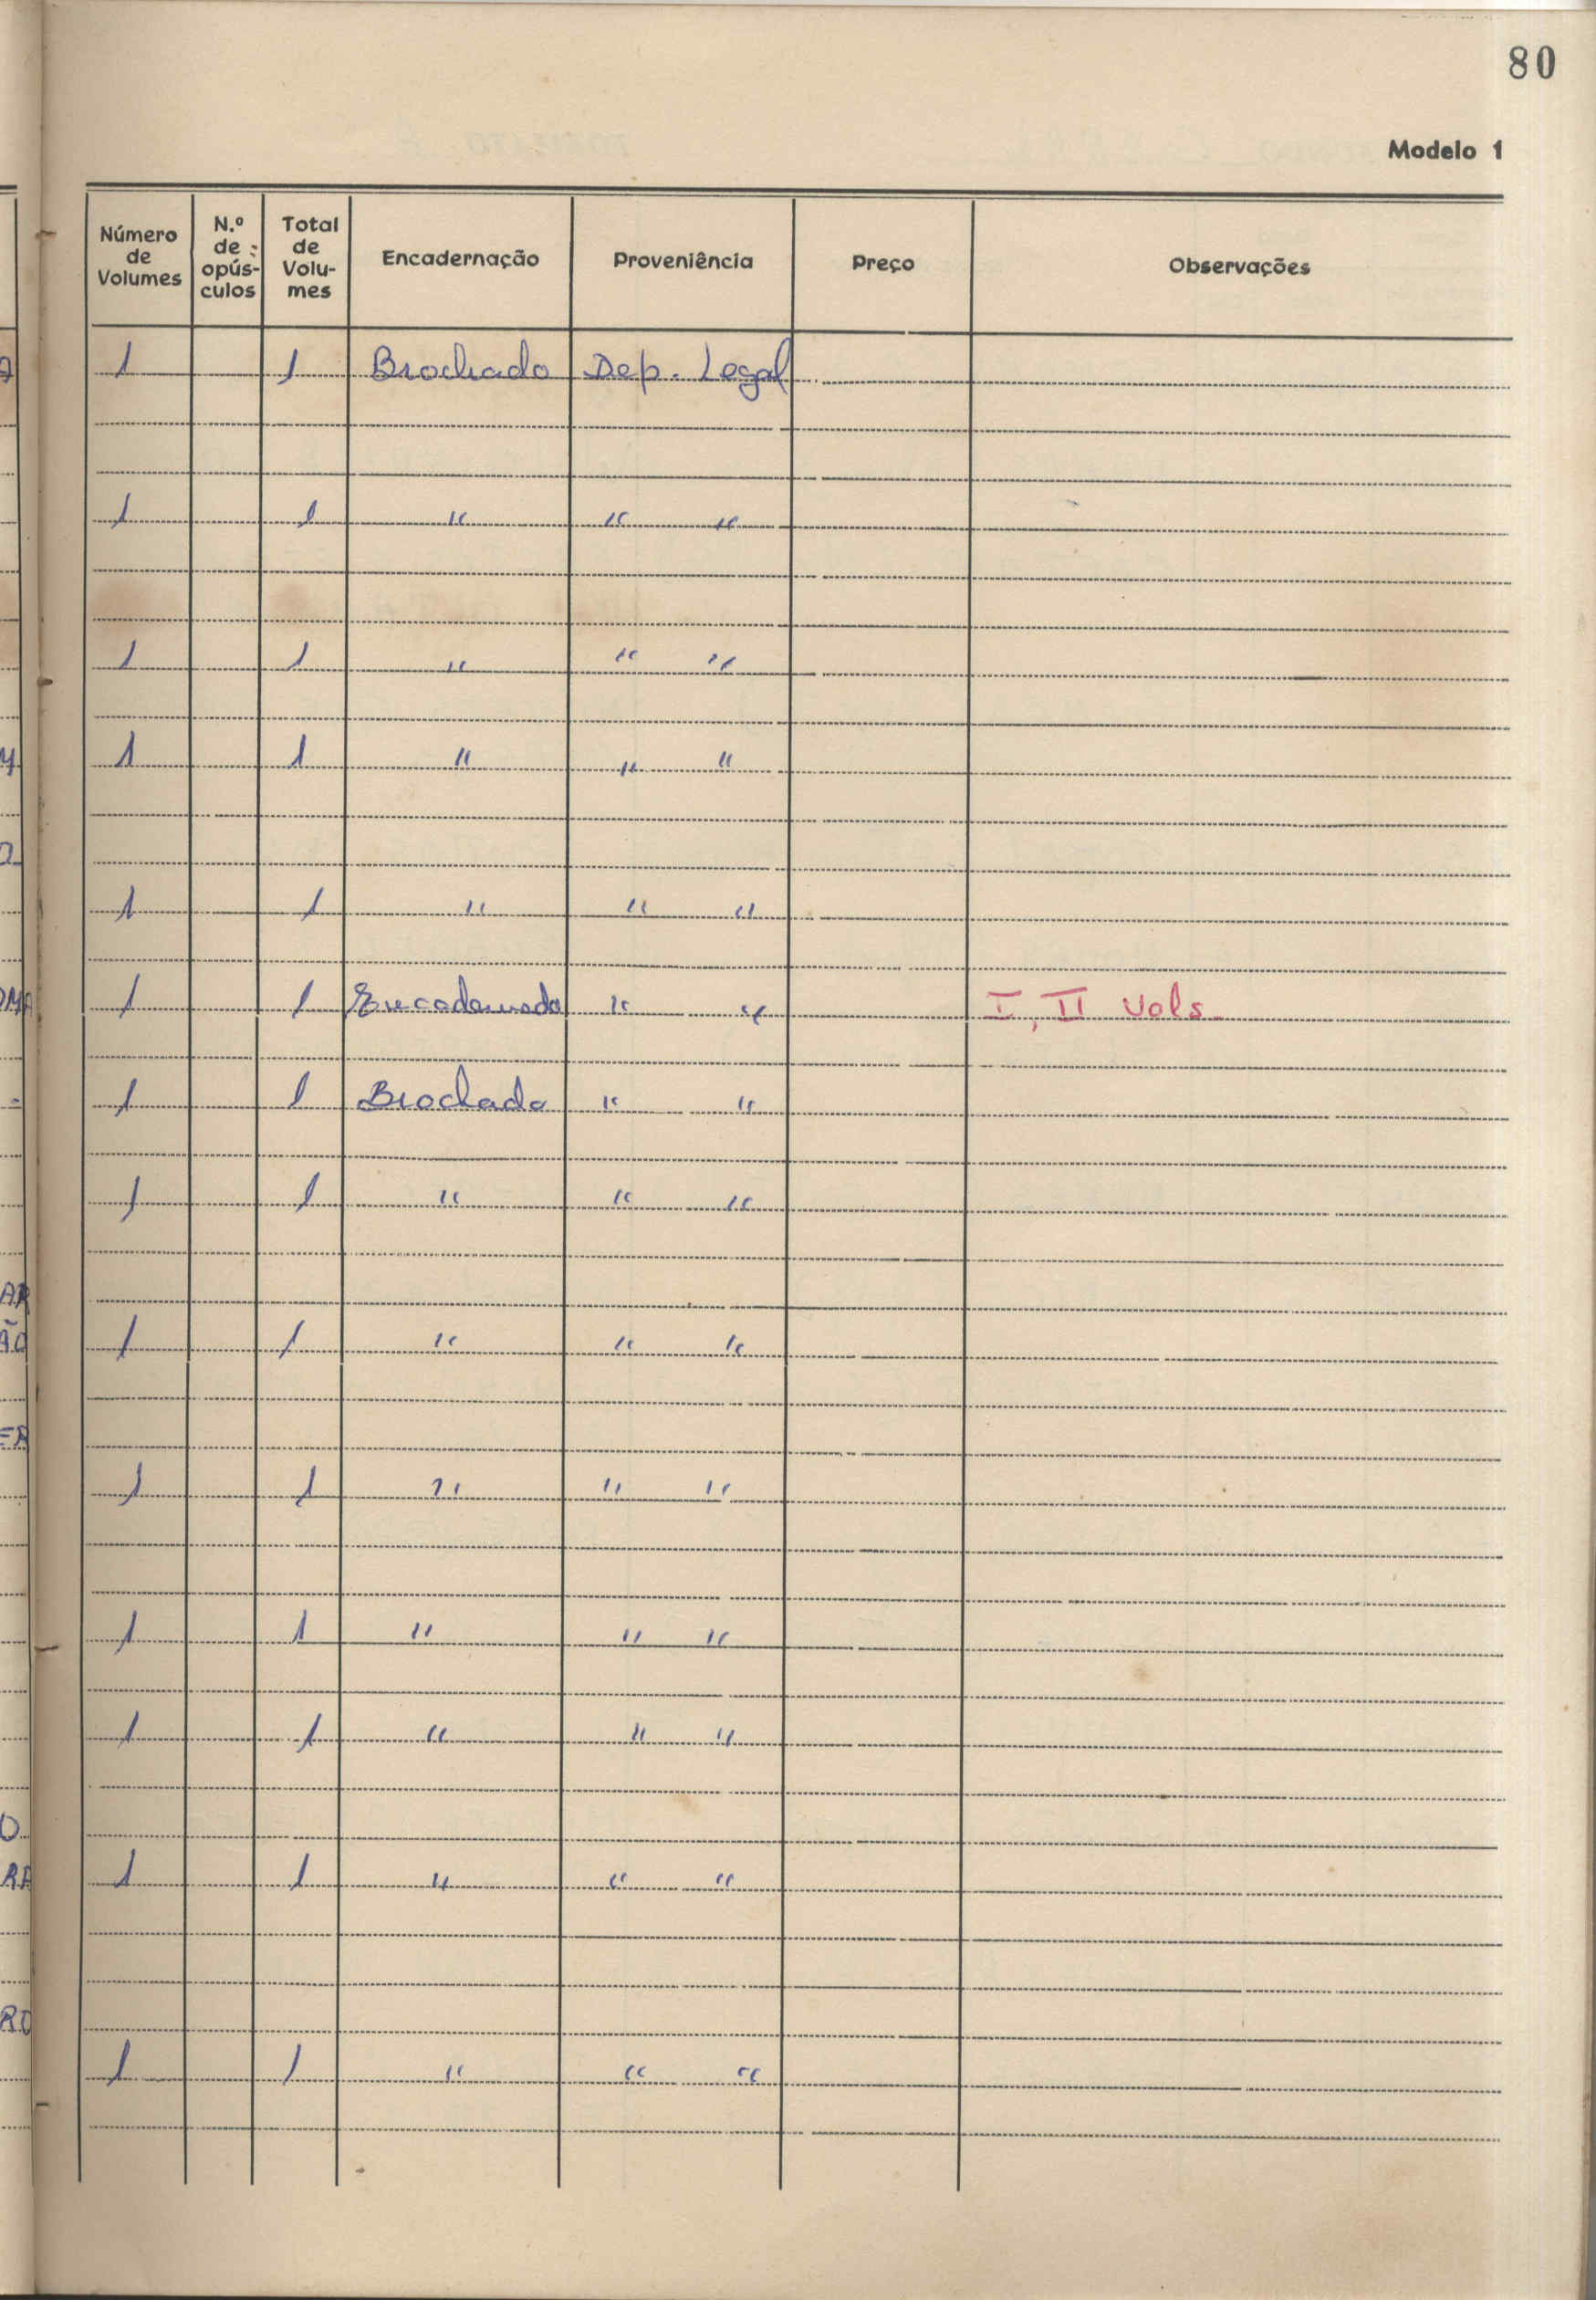 80
Modelo 1
Número de Volumes N.º de opús-culos Total de Volu-mes Encadernação Proveniência Preço Observações
1 1 Brochado Dep. Legal
1 1 " " "
1 1 " " "
1 1 " " "
1 1 " " "
1 1 Encadernado " " I, II Vols.
1 1 Brochado " "
1 1 " " "
1 1 " " "
1 1 " " "
1 1 " " "
1 1 " " "
1 1 " " "
1 1 " " "